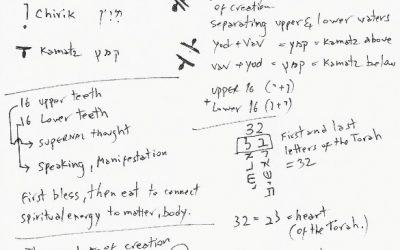 Chirik חיריק
Kamatz קמץ
16 upper teeth
16 Lower teeth
supernal thought
speaking, Manifestation
First bless, then eat to connect
spiritual energy to matter, body.
of creation
of creation
separating upper & lower waters
yod + Vav = קמץ = Kamatz above
vav + yod = קמץ = Kamatz below
upper 16
+ Lower 16
32
First and last
letters of the Torah
= 32
32 = לב = heart
(of the Torah.)